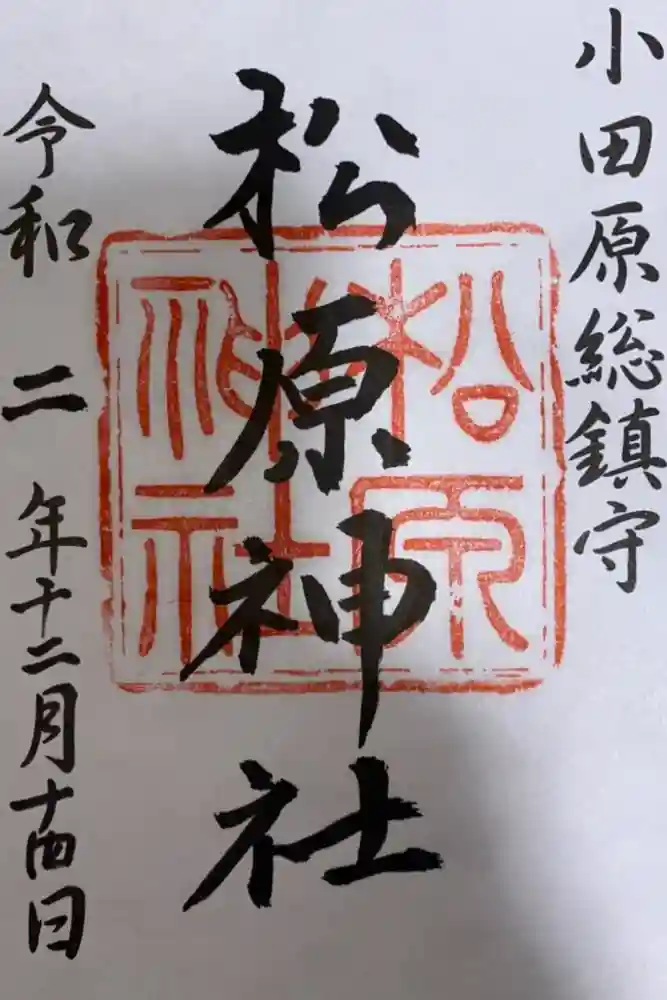 小田原総鎮守
松原神社
松原神社
令和二年十二月十四日